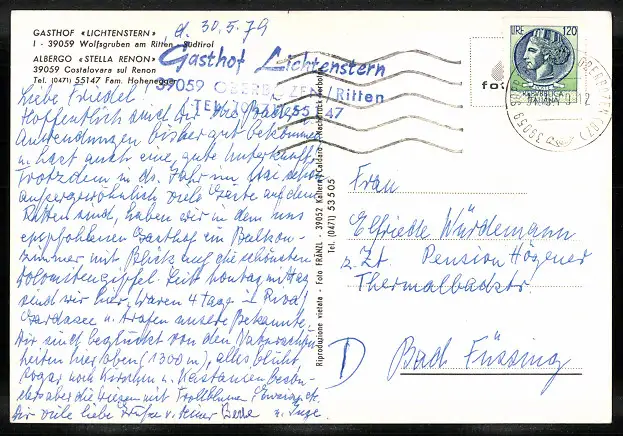 GASTHOF «LICHTENSTERN»
I - 39059 Wolfsgruben am Ritten - Südtirol
ALBERGO «STELLA RENON»
39059 Costalovara sul Renon
Tel. (0471) 55147 Fam. Hohenegger
d. 30.5.79
Gasthof Lichtenstern
39059 OBERBOZEN/Ritten
TEL. (0471) 55147
Liebe Friedel!
Hoffentlich sind Dir die Bäder
Anwendungen bisher gut bekommen
u. hast auch eine gute Unterkunft.
Trotzdem in ds. Jahr schon
außergewöhnlich viele Gäste auf dem
Ritten sind, haben wir in dem uns
empfohlenen Gasthof ein Balkon-
zimmer mit Blick auf die schönsten
Dolomitengipfel. Seit Montag mittag
sind wir hier, waren 4 Tage in Riva/
Gardasee u. trafen unsere Bekannte.
Wir sind beglückt von den Naturschön-
heiten hier oben (1300 m), alles blüht
sogar noch Kirschen u. Kastanien
aber die Wiesen mit Trollblumen, Enzian etc.
Dir viele liebe Grüße v. u. Inge
Riproduzione vietata - Foto FRÄNZL - 39052 Kaltern/Caldaro - Nachdruck verboten
Tel. (0471) 53505
LIRE 120
REPUBBLICA
ITALIANA
foto
39059
Frau
Elfriede Würdemann
z. Zt. Pension Högener
Thermalbadstr.
D Bad Füssing